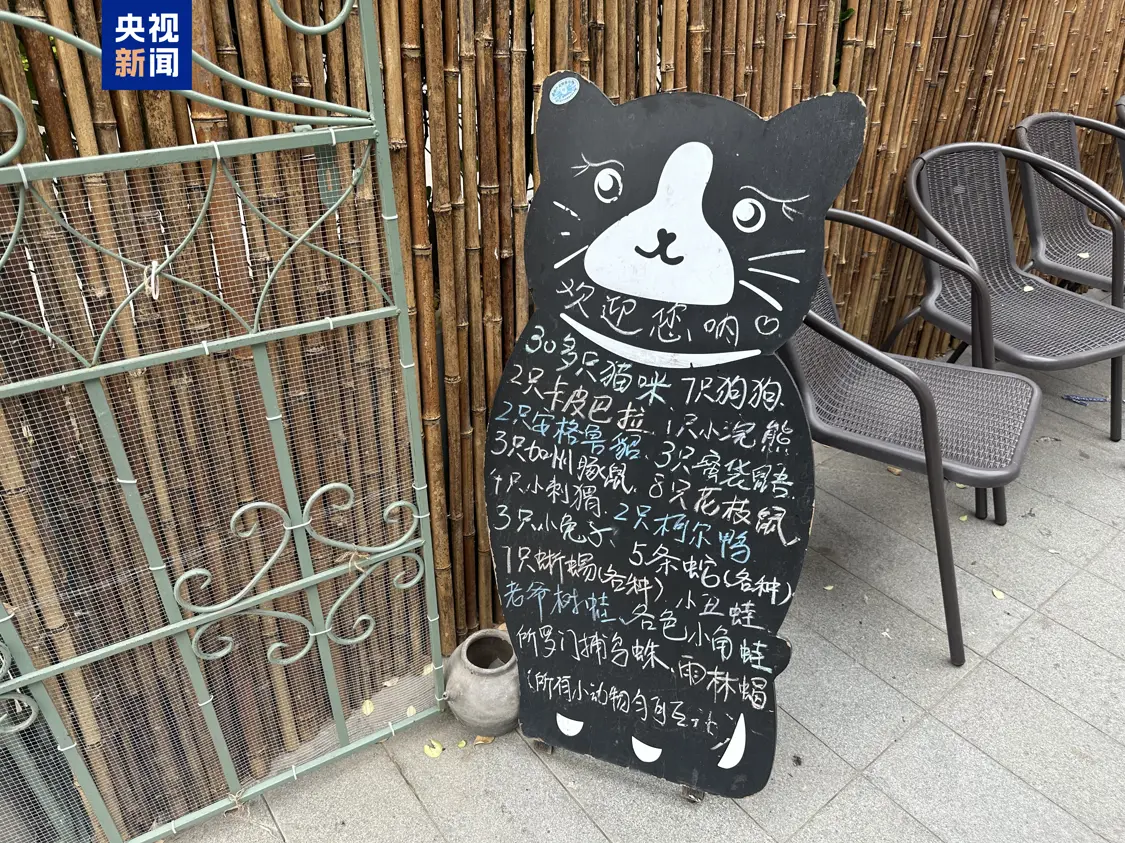 央视
新闻
欢迎您呐
30多只猫咪、7只狗狗、
2只卡皮巴拉、1只小浣熊
2只安格鲁貂、3只蜜袋鼯、
3只加州豚鼠、8只花枝鼠、
1只小刺猬、
3只小兔子、2只柯尔鸭
7只蜥蜴(各种)、5条蛇(各种)
老爷树蛙、小丑蛙
各色小角蛙
所罗门捕鸟蛛、雨林蝎
(所有小动物均可互动)